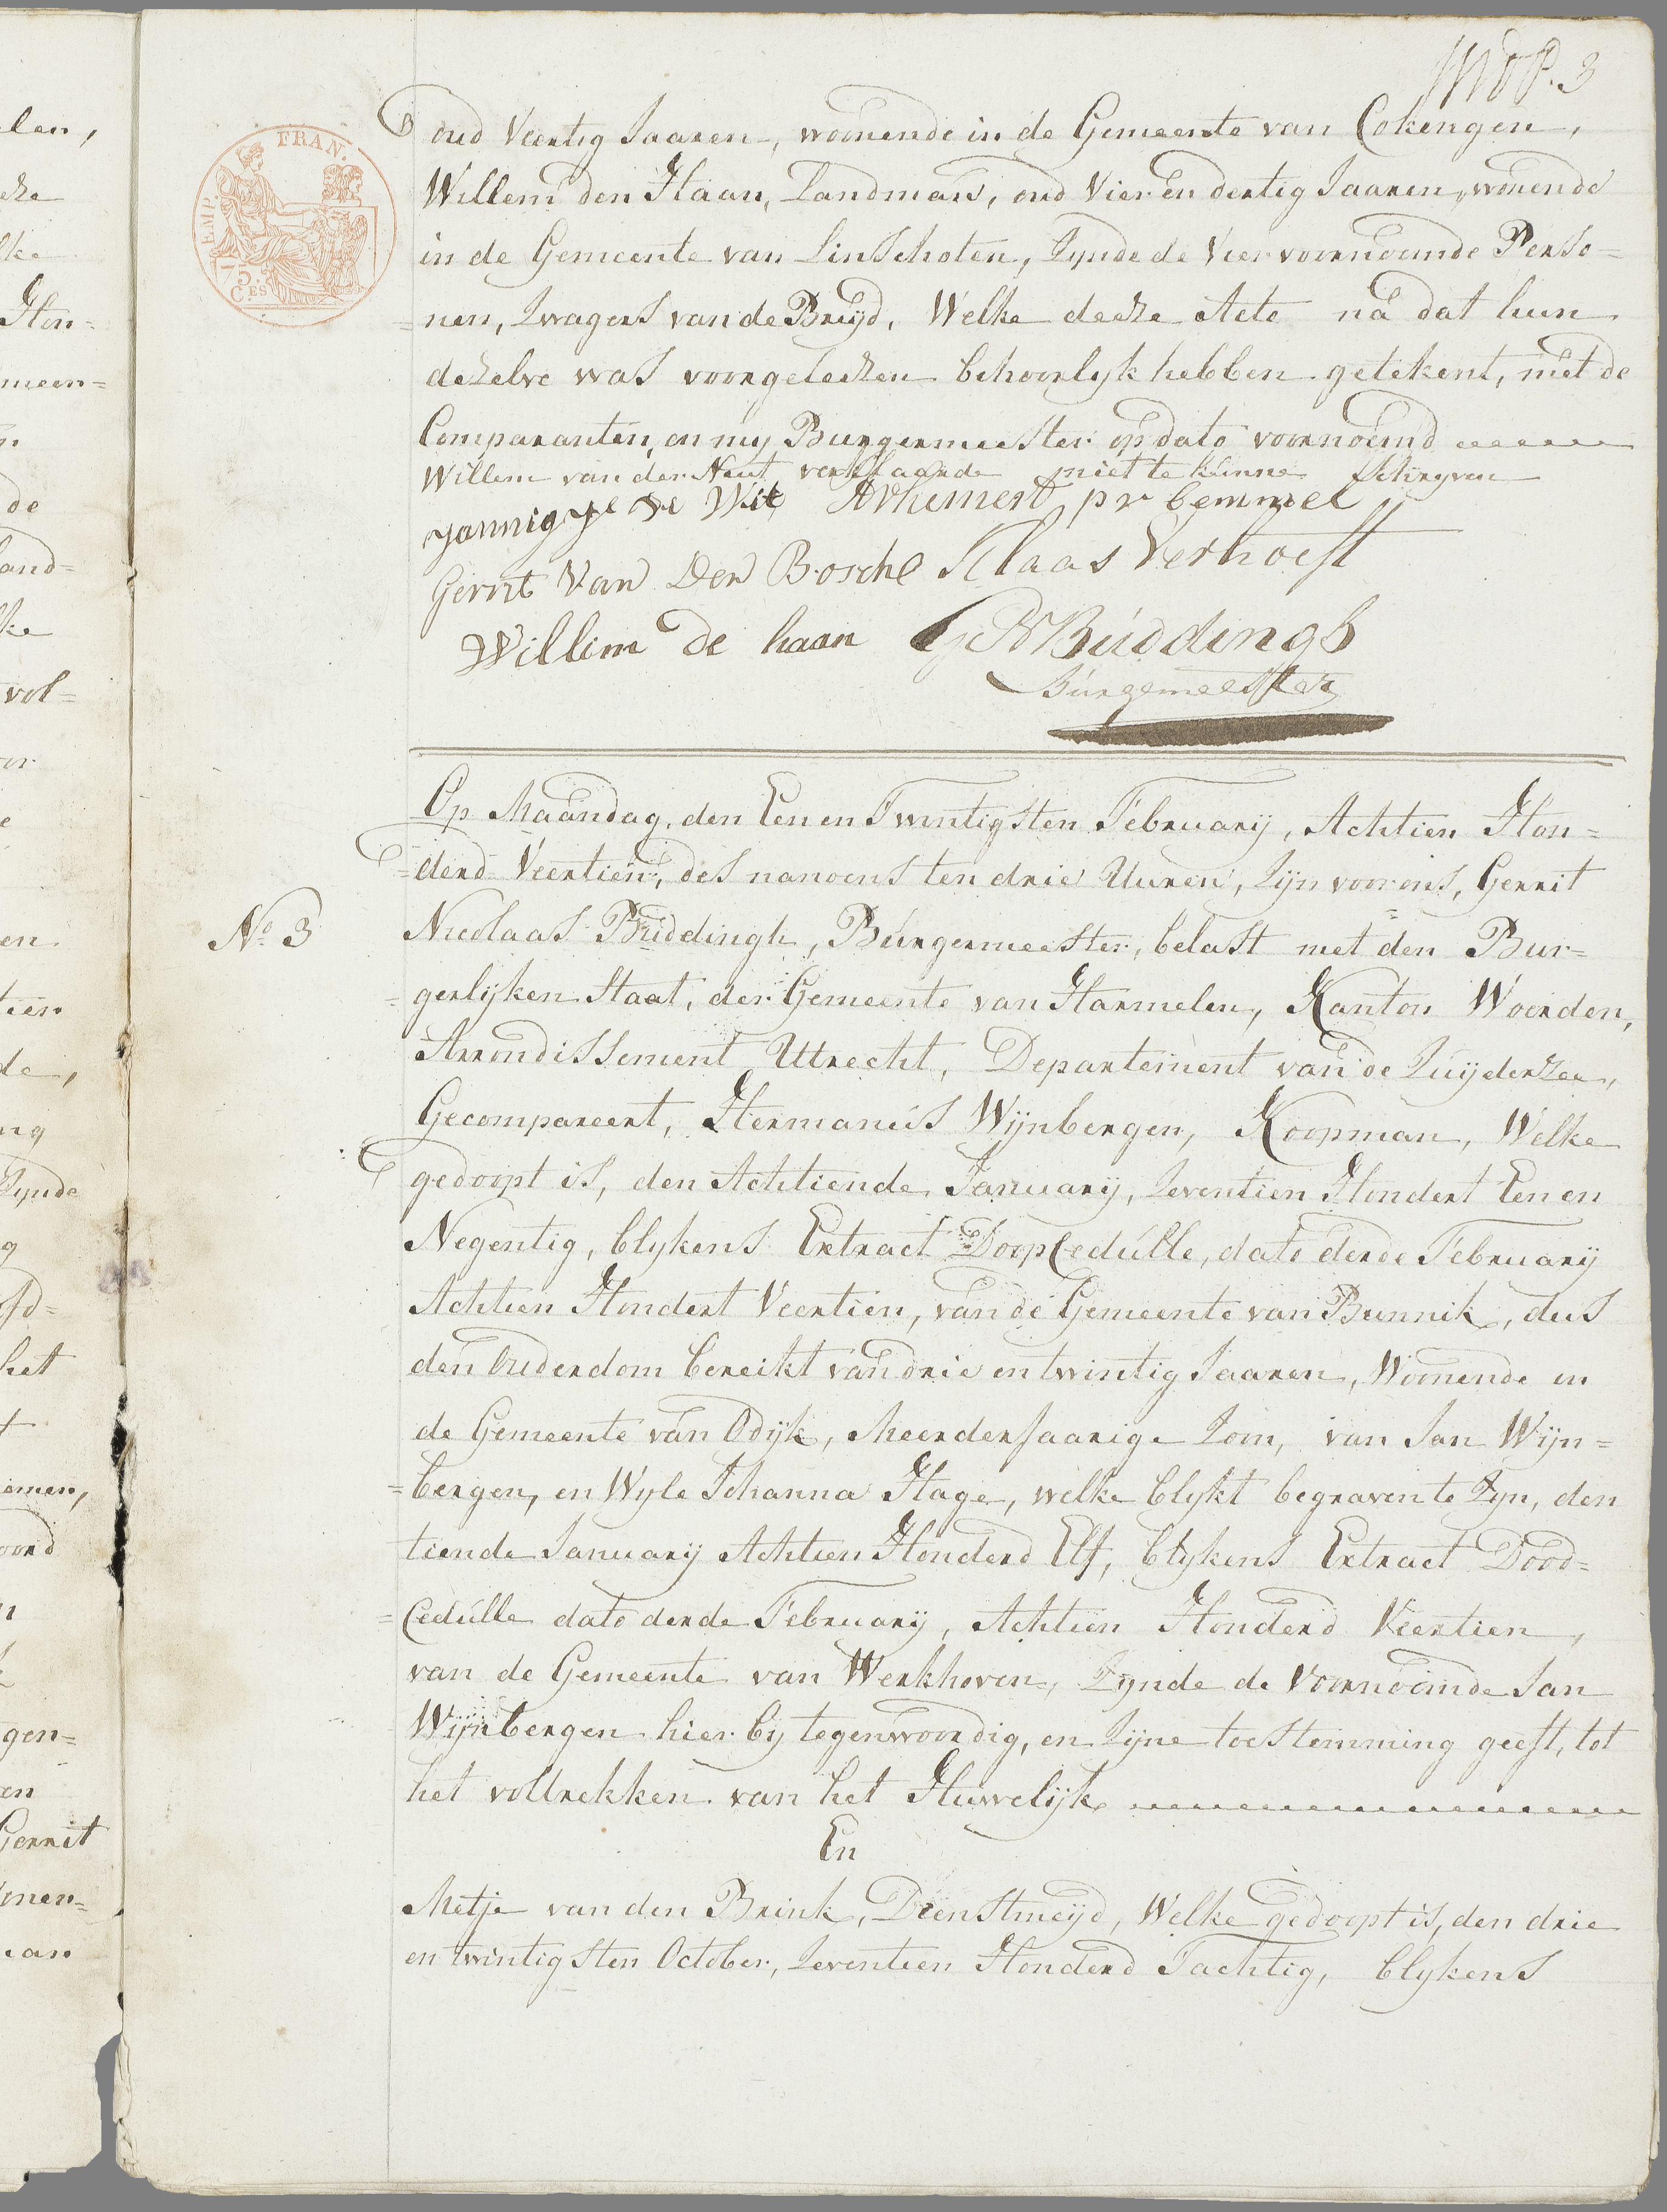 3
oud Veertig Jaaren, woonende in de Gemeente van Cokengen,
FRAN.
EMP.
75.
CES
Willem den Haan, Landman, oud Vier en dertig Jaaren, wonende
in de Gemeente van Linschoten, Zynde de Vier voornoemde Perso=
=nen, Zwagers van de Bruyd, Welke deeze Acte na dat hun
dezelve was voorgeleezen behoorlyk hebben getekent, met de
Comparanten, en my Burgermeester op dato voornoemd
Willem van der Neut verklaarde niet te kunne Schryven
Jannigje de Wit AvHemert pr bemmel
Gerrit Van Den Bosch Klaas Verhoeft
Willem de haan GNBuddingh
Burgemeester
Op Maandag, den Een en Twintigsten February, Achtien Hon=
=derd Veertien, des namens ten drie Uuren, Zijn voor ons, Gerrit
No. 3
Nicolaas Buddingh, Burgermeester, belast met den Bur=
=gerlijken Staat, der Gemeente van Harmelen, Kanton Woerden,
Arrondissement Uttrecht, Departement van de Zuijderzee,
Gecompareert, Hermanus Wijnbergen, Koopman, Welke
gedoopt is, den Achtiende January, Zeventien Hondert Een en
Negentig, blykens Extract Doop Cedulle, dato derde February
Achtien Hondert Veertien, van de Gemeente van Bunnik, dus
den Ouderdom bereikt van drie en twintig Jaaren, Woonende in
de Gemeente van Odijk, Meerderjaarige Zoon, van Jan Wijn=
=bergen, en Wyle Johanna Hage, welke blykt begraven te Zyn, den
tiende January Achtien Honderd Elf, blykens Extract Dood=
=Cedulle dato derde February, Achtien Honderd Veertien,
van de Gemeente van Werkhoven, Zynde de voornoemde Jan
Wijnbergen hier by tegenwoordig, en Zijne toestemming geeft, tot
het voltrekken van het Huwelijk
En
Metje van den Brink, Dienstmeijd, Welke gedoopt is, den drie
en twintigsten October, Zeventien Honderd Tachtig, blykens